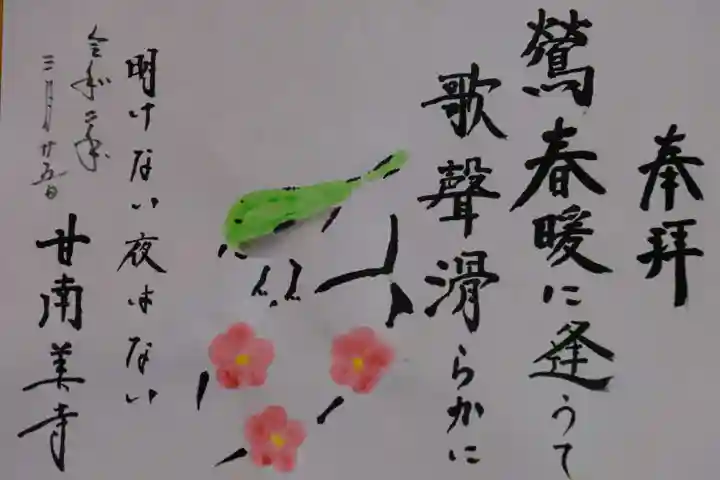 奉拝
鶯春暖に逢うて
歌聲滑らかに
明けない夜はない
令和二年
三月廿五日
甘南美寺